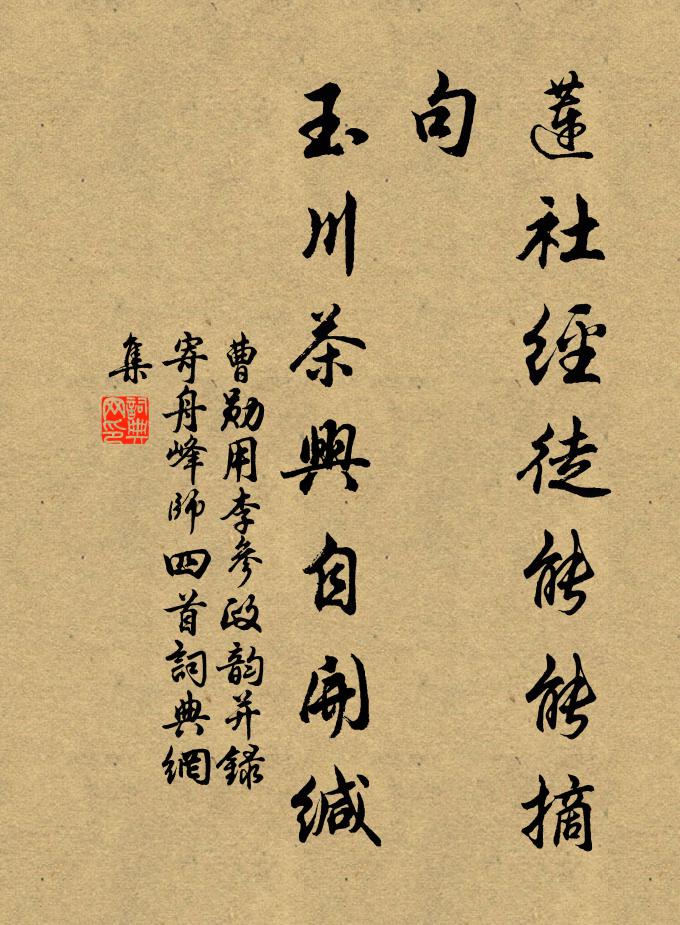 蓮社經徒能能摘
句
玉川茶興自開緘
曹勛用李參政韵并錄
寄舟峰師四首詞典網
集
詞典
网印